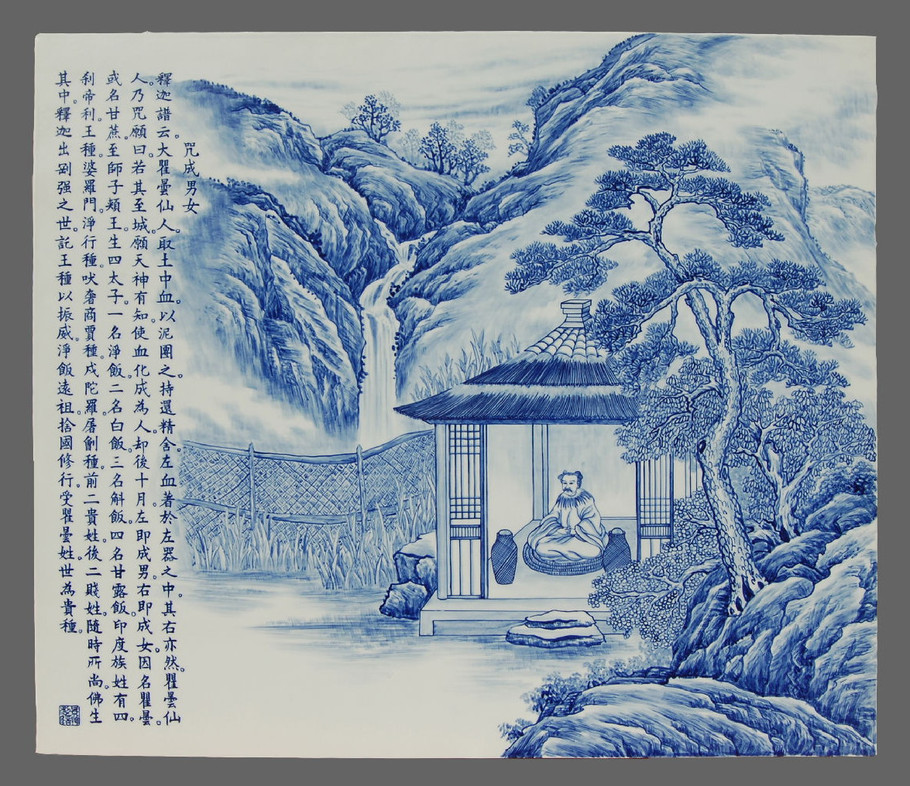 咒成男女
釋迦譜云。大瞿曇仙人。取土中血。以泥團之。持還精舍。左血著於左器之中。其右亦然。瞿曇仙
人。乃咒願曰。若其至城。願天神有知。使血化成為人。却後十月。左即成男。右即成女。因名瞿曇。
或名甘蔗。至師子頰王。生四太子。一名淨飯。二名白飯。三名斛飯。四名甘露飯。印度族姓有四。
刹帝利王種。婆羅門。淨行種。吠奢商賈種。戍陀羅。屠劊種。前二貴姓。後二賤姓。隨時所尚。佛生
其中。釋迦出剛强之世。託王種以振威。淨飯遠祖。捨國修行。受瞿曇姓。世為貴種。